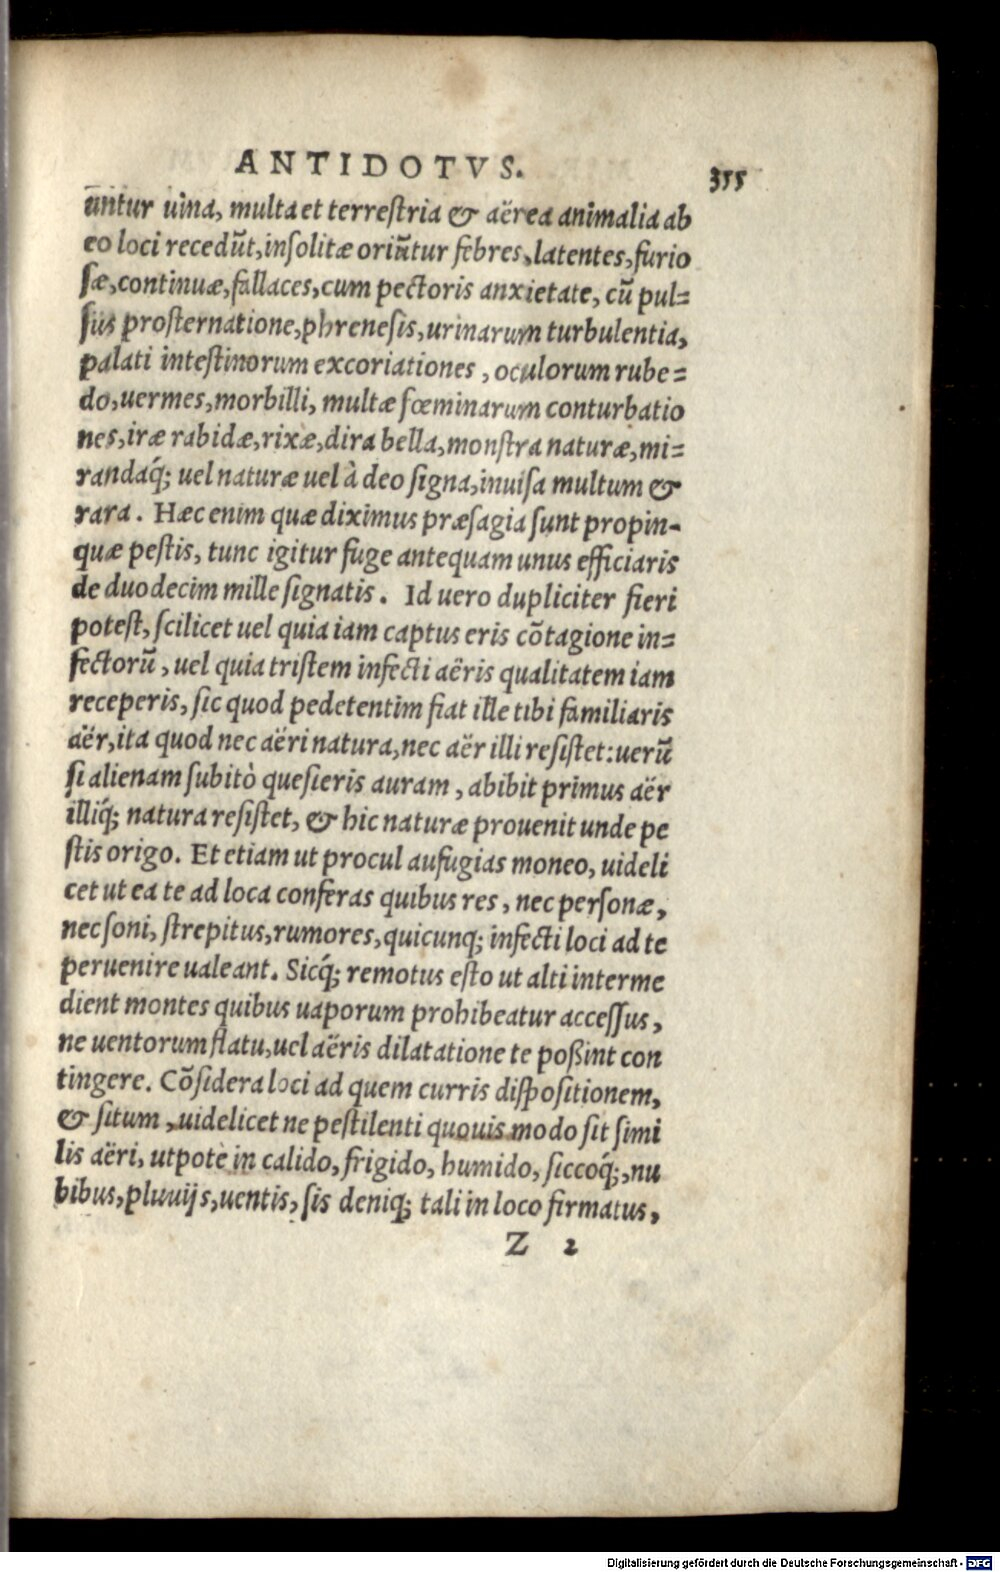 ANTIDOTVS. 355
ūntur uina, multa et terreſtria & aërea animalia ab
eo loci recedūt, inſolitæ oriūtur febres, latentes, furio
ſæ, continuæ, fallaces, cum pectoris anxietate, cū pul=
ſus proſternatione, phreneſis, urinarum turbulentia,
palati inteſtinorum excoriationes, oculorum rube=
do, uermes, morbilli, multæ fœminarum conturbatio
nes, iræ rabidæ, rixæ, dira bella, monſtra naturæ, mi=
randaq́; uel naturæ uel à deo ſigna, inuiſa multum &
rara. Hæc enim quæ diximus præſagia ſunt propin-
quæ peſtis, tunc igitur fuge antequam unus efficiaris
de duodecim mille ſignatis. Id uero dupliciter fieri
poteſt, ſcilicet uel quia iam captus eris cōtagione in=
fectorū, uel quia triſtem infecti aëris qualitatem iam
receperis, ſic quod pedetentim fiat ille tibi familiaris
aër, ita quod nec aëri natura, nec aër illi reſiſtet: uerū
ſi alienam ſubitò queſieris auram, abibit primus aër
illiq́; natura reſiſtet, & hic naturæ prouenit unde pe
ſtis origo. Et etiam ut procul aufugias moneo, uideli
cet ut ea te ad loca conferas quibus res, nec perſonæ,
nec ſoni, ſtrepitus, rumores, quicunq; infecti loci ad te
peruenire ualeant. Sicq́; remotus eſto ut alti interme
dient montes quibus uaporum prohibeatur acceſſus,
ne uentorum flatu, uel aëris dilatatione te poßint con
tingere. Cōſidera loci ad quem curris diſpoſitionem,
& ſitum, uidelicet ne peſtilenti quouis modo ſit ſimi
lis aëri, utpote in calido, frigido, humido, ſiccoq́;, nu
bibus, pluuijs, uentis, ſis deniq; tali in loco firmatus,
Z 2
Digitalisierung gefördert durch die Deutsche Forschungsgemeinschaft - DFG